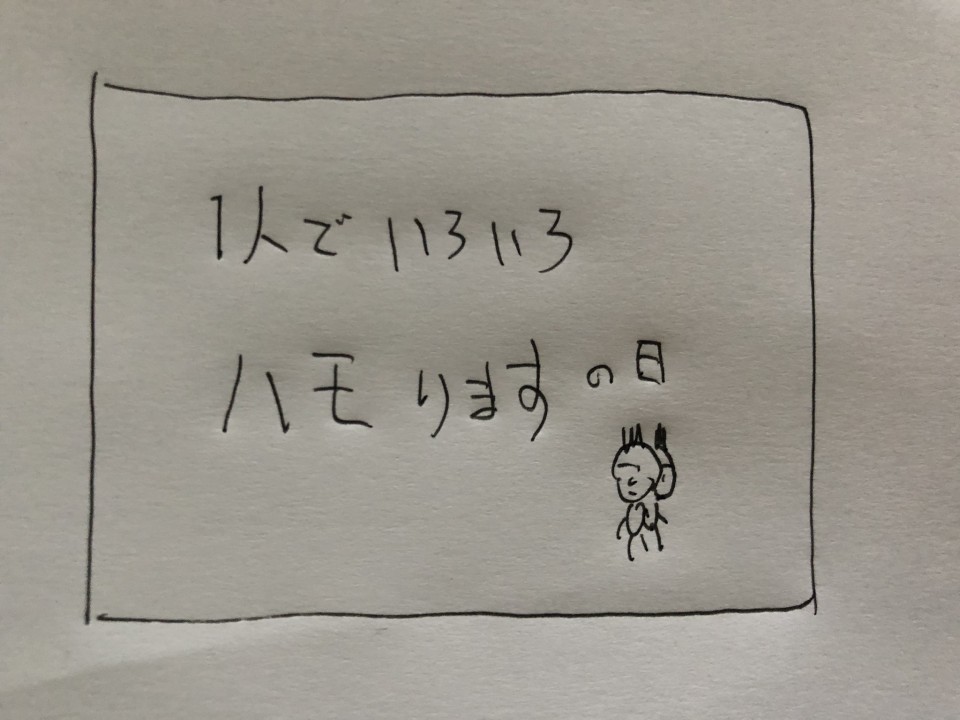 1人でいろいろ
ハモりますの日